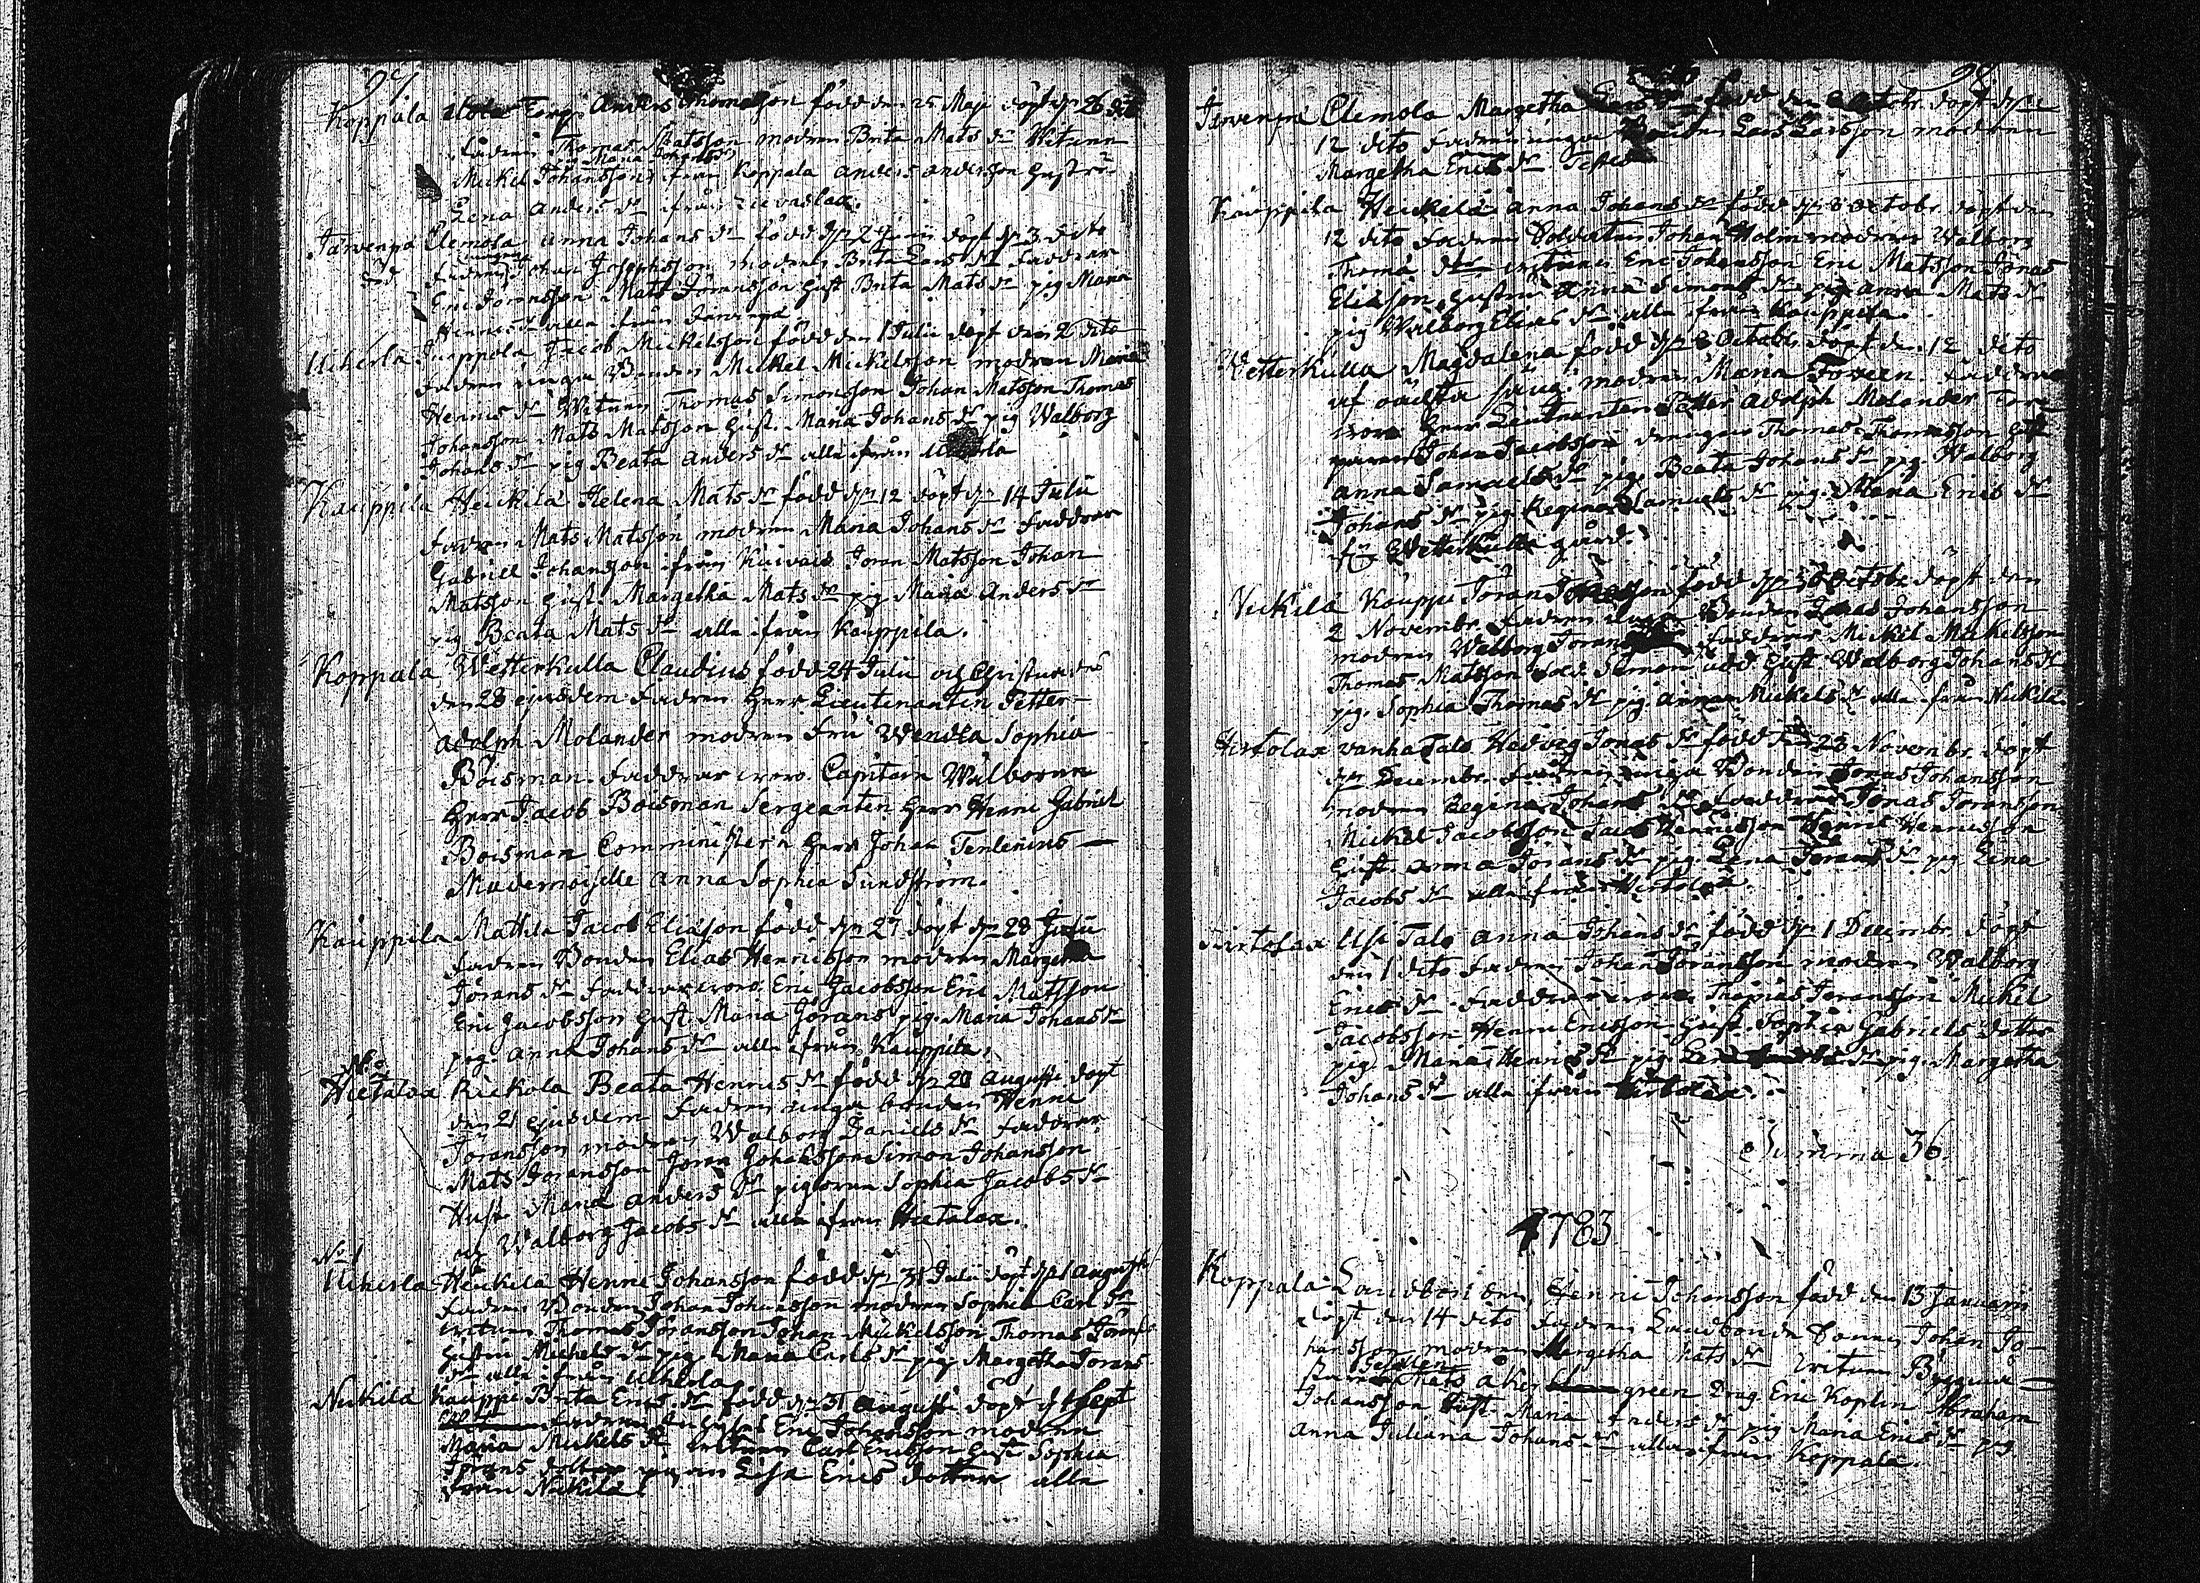 97.
Koppala Torp. Anders Thomasson född den 25 Maji döpt dn 26 dito
Fadren Thomas Matsson modren Brita Mats dr Witnen
pig Maria Johans dr
Mickel Johansson från Koppala Anders Andersson Hustru
Lena Anders dr från
Jarvenpä Clemola Anna Johans dr född dn 2 Junii döpt dn 3 dito
Fadren Johan Josephsson modren Brita Lars dr Faddrar
Eric Joransson Mats Joransson hust Brita Mats dr pig Maria
Henrics dr alla från Järvenpä.
Uckerla Juppola Jacob Mickelsson född den 1 Julii döpt den 2 dito
Fadren unga Bonden Mickel Mickelsson modren Maria
Henrics dr Witnen Thomas Simonsson Johan Matsson Thomas
Johansson Mats Matsson hust. Maria Johans dr pig Walborg
Johans dr pig Beata Anders dr alla från
Kauppila Heickilä Helena Mats dr född dn 12 döpt dn 14 Julii
Fadren Mats Matsson modren Maria Johans dr Faddrar
Gabriel Johansson från Joran Matsson Johan
Matsson hust. Margetha Mats dr pig Maria Anders dr
pig Beata Mats dr alla från Kauppila.
Koppala Wetterkulla Claudius född 24 Julii och Christnades
den 28 ejusdem Fadren Herr Lieutenanten Petter
Adolph Molander modren Fru Wendla Sophia
Boisman. Faddrar woro. Capitain Wälborne
Herr Jacob Boisman Sergeanten Herr Henric Gabriel
Boisman Comministern Herr Johan Tenlenius
Mademoiselle Anna Sophia Sundström.
Kauppila Mattila Jacob Eliasson född dn 27 döpt dn 28 Julii
Fadren Bonden Elias Henricsson modren Margetha
Jorans dr Faddrar woro. Eric Jacobsson Eric Matsson
Eric Jacobsson hust. Maria Jörans pig. Maria Johans dr
pig. Anna Johans dr alla från Kauppila.
No 2
Hietalax Rickola Beata Henrics dr född dn 20 Augusti döpt
den 21 ejusdem Fadren unga bonden Henric
Joransson modren Walborg Daniels dr Faddrar
Mats Joransson Joran Johansson Simon Johansson
Hust Maria Anders dr pigorna Sophia Jacobs dr
och Walborg Jacobs dr alla från Hietalax.
No 1
Uckerla Heickilä Henric Johansson född dn 31 Julii döpt dn 1 Augusti
Fadren Bonden Johan Johansson modren Sophia Carl dr
witnen Thomas Joransson Johan Mickelsson Thomas Jorans
hustru Michels dr pig. Maria Carls dr pig Margetha Jorans
dr alla från Uckerla
Nickilä Kauppi Brita Erics dr född dn 31 Augusti döpt d 1 Sept
Fadren Eric Johansson modren
Maria Mickels dr witnen Carl Ericsson hust Sophia
Jorans dotter pigan Lisa Erics dotter alla
från Nickilä.
98.
Jarvenpä Clemola Margetha Lars dr född den Octobr. döpt den
12 dito Fadren unga Bonden Lars Larsson modren
Margetha Erics dr
Kauppila Heickelä Anna Johans dr född dn 8 Octobr. döpt den
12 dito Fadren Soldaten Johan Holm modren Walborg
Thoma dr witnen Eric Johansson Eric Matsson Jonas
Eliasson, hustru Anna Simons dr pig Anna Mats dr
pig Walborg Elias dr alla från Kauppila.
Wetterkulla Magdalena född dn 8 Octobr. döpt den 12 dito
af oächta säng. modren Maria Faddrar
woro Herr Lieutnanten Petter Adolph Molander
Johan Jacobsson drengen Thomas Thomasson
Anna Samuels dr pig. Beata Johans dr pig. Walborg
Johans dr pig Regina Samuels dr pig. Maria Erics dr
fr Wetterkulla gård.
Nickilä Kauppi Joran född dn 30 Octobr döpt den
2 Novembr. Fadren unga Bonden Johansson
modren Walborg Jorans Faddrar Mickel Mickelsson
Thomas Matsson Sold. Simon hust Walborg Johans dr
pig. Sophia Thomas dr pig. Anna Mickels dr alla från Nickilä.
Hirtolax Wanha Talo Hedvig Jonas dr född d 23 Novembr. döpt
Decembr. Fadren unga Bonden Jonas Johansson
modren Regina Johans dr Faddrar Jonas Joransson
Mickel Jacobsson Jacob Henricsson Henric Henricsson
Hust. Anna Jörans dr pig. Lena Jorans dr pig Lena
Jacobs dr alla från Hirtolax.
Hirtolax Usi Talo Anna Johans dr född dn 1 Decembr. döpt
den 1 dito Fadren Johan Joransson modren Walborg
Erics dr Faddrar woro Thomas Joransson Mickel
Jacobsson Henric Ericsson Hust. Sophia Gabriels dotter
pig. Maria Henrics dr pig. dr pig. Margetha
Johans dr alla från Hirtolax.
Summa 36.
1783
Koppala Landbonden, Henric Johansson född den 13 Januarii
döpt den 14 dito Fadren Landbonde Sonen Johan Jo-
hansson modren Margetha Mats dr Witnen Byggmä-
staren Mats Åker green Drag. Eric Koplin Abraham
Johansson Hust. Maria Anders dr pig Maria Erics dr pig.
Anna Juliana Johans dr alla från Koppala.